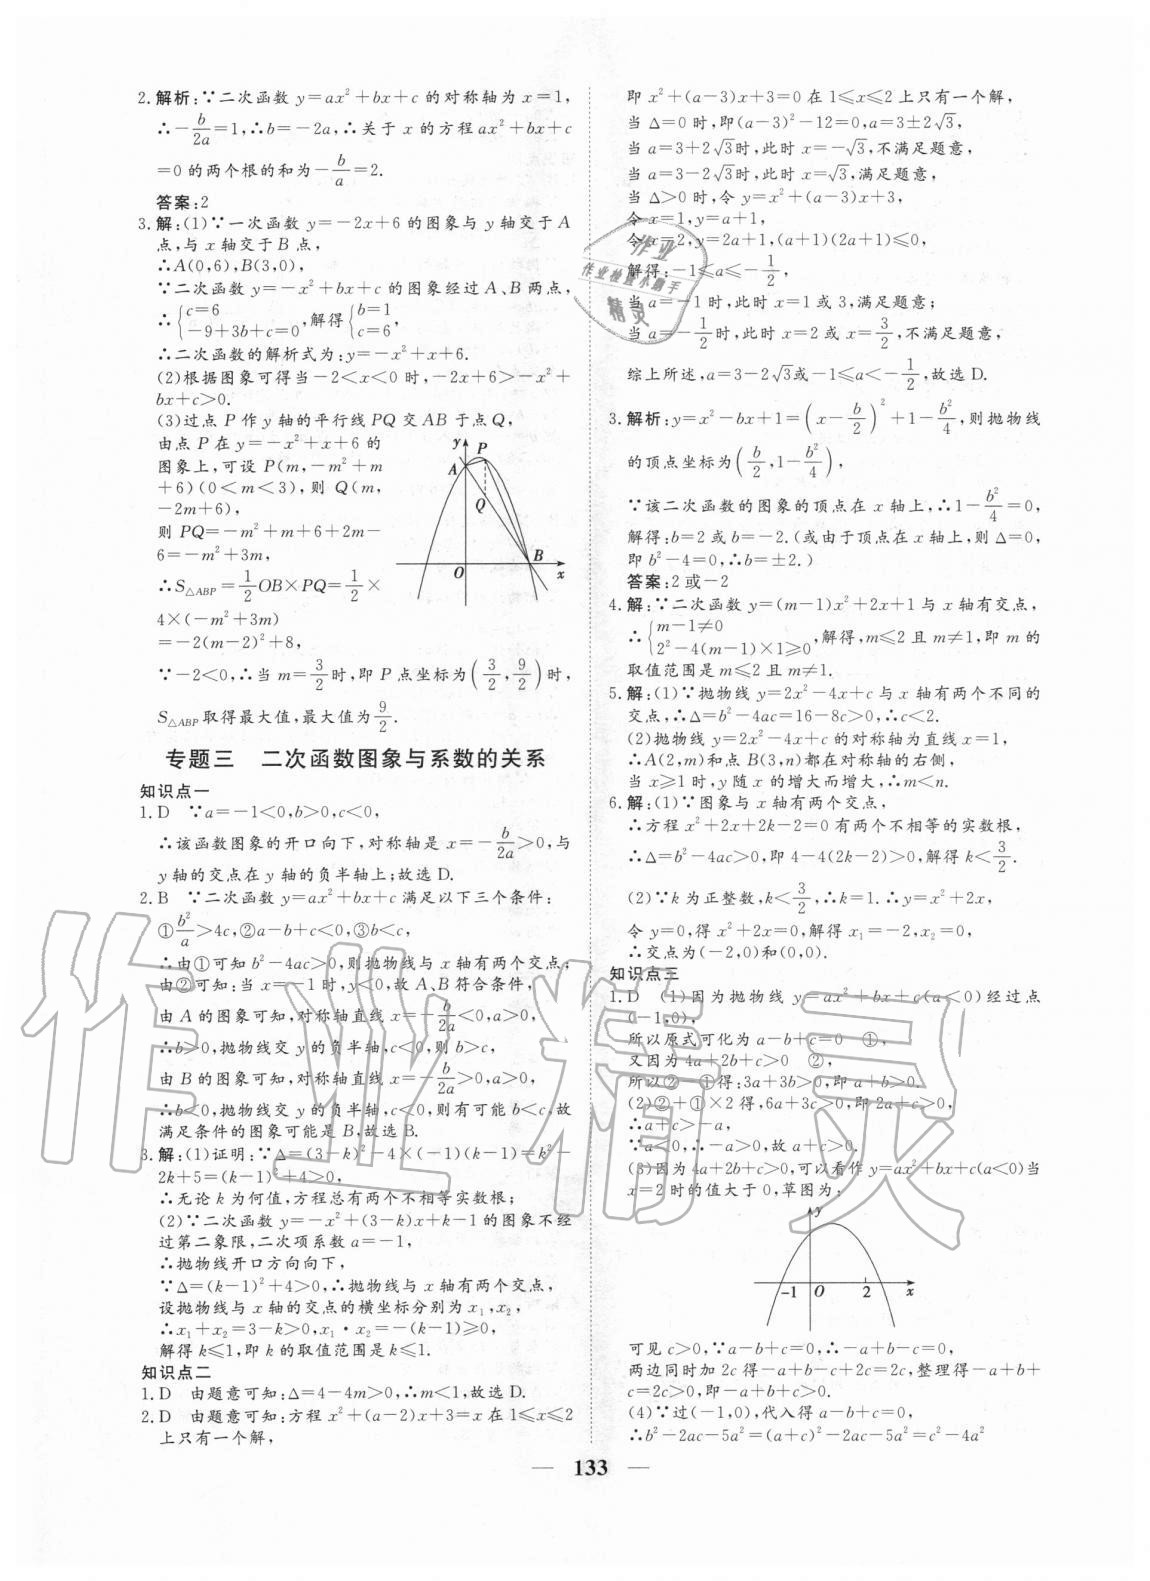 2.解析:∵二次函数 y=ax²+bx+c 的对称轴为 x=1,
∴-b/2a=1,∴b=-2a,∴关于 x 的方程 ax²+bx+c
=0的两个根的和为-b/a=2.
答案:2
3.解:(1)∵一次函数 y=-2x+6 的图象与 y 轴交于 A
点,与 x 轴交于 B 点,
∴A(0,6),B(3,0),
∵二次函数 y=-x²+bx+c 的图象经过 A、B 两点,
∴{c=6 -9+3b+c=0,解得{b=1 c=6,
∴二次函数的解析式为:y=-x²+x+6.
(2)根据图象可得当-2<x<0 时,-2x+6>-x²+
bx+c>0.
(3)过点 P 作 y 轴的平行线 PQ 交 AB 于点 Q,
由点 P 在 y=-x²+x+6 的
图象上,可设 P(m,-m²+m
+6)(0<m<3),则 Q(m,
-2m+6),
则 PQ=-m²+m+6+2m-
6=-m²+3m,
∴S△ABP=1/2OB×PQ=1/2×
4×(-m²+3m)
=-2(m-2)²+8,
∵-2<0,∴当 m=3/2时,即 P 点坐标为(3/2,9/2)时,
S△ABP取得最大值,最大值为9/2.
y
P
A
Q
B
O
x
专题三 二次函数图象与系数的关系
知识点一
1.D ∵a=-1<0,b>0,c<0,
∴该函数图象的开口向下,对称轴是 x=-b/2a>0,与
y轴的交点在 y 轴的负半轴上;故选D.
2.B ∵二次函数 y=ax²+bx+c 满足以下三个条件:
①b²/a>4c,②a-b+c<0,③b<c,
∴由①可知 b²-4ac>0,则抛物线与 x 轴有两个交点,
由②可知:当 x=-1时,y<0,故 A、B 符合条件,
由 A 的图象可知,对称轴直线 x=-b/2a<0,a>0,
∴b>0,抛物线交 y 的负半轴,c<0,则 b>c,
由 B 的图象可知,对称轴直线 x=-b/2a>0,a>0,
∴b<0,抛物线交 y 的负半轴,c<0,则有可能 b<c,故
满足条件的图象可能是 B,故选 B.
3.解:(1)证明:∵Δ=(3-k)²-4×(-1)(k-1)=k²-
2k+5=(k-1)²+4>0,
∴无论 k 为何值,方程总有两个不相等实数根;
(2)∵二次函数 y=-x²+(3-k)x+k-1 的图象不经
过第二象限,二次项系数 a=-1,
∴抛物线开口方向向下,
∵Δ=(k-1)²+4>0,∴抛物线与 x 轴有两个交点,
设抛物线与 x 轴的交点的横坐标分别为 x₁,x₂,
∴x₁+x₂=3-k>0,x₁·x₂=-(k-1)≥0,
解得 k≤1,即 k 的取值范围是 k≤1.
知识点二
1.D 由题意可知:Δ=4-4m>0,∴m<1,故选 D.
2.D 由题意可知:方程 x²+(a-2)x+3=x 在 1≤x≤2
上只有一个解,
即 x²+(a-3)x+3=0 在 1≤x≤2 上只有一个解,
当 Δ=0 时,即(a-3)²-12=0,a=3±2√3,
当 a=3+2√3时,此时 x=-√3,不满足题意,
当 a=3-2√3时,此时 x=√3,满足题意,
当 Δ>0 时,令 y=x²+(a-3)x+3,
令 x=1,y=a+1,
令 x=2,y=2a+1,(a+1)(2a+1)≤0,
解得:-1≤a≤-1/2,
当 a=-1时,此时 x=1或3,满足题意;
当 a=-1/2时,此时 x=2或 x=3/2,不满足题意,
综上所述,a=3-2√3或-1≤a<-1/2,故选D.
3.解析:y=x²-bx+1=(x-b/2)²+1-b²/4,则抛物线
的顶点坐标为(b/2,1-b²/4),
∵该二次函数的图象的顶点在 x 轴上,∴1-b²/4=0,
解得:b=2或 b=-2.(或由于顶点在 x 轴上,则 Δ=0,
即 b²-4=0,∴b=±2.)
答案:2或-2
4.解:∵二次函数 y=(m-1)x²+2x+1 与 x 轴有交点,
∴{m-1≠0 2²-4(m-1)×1≥0,解得,m≤2 且 m≠1,即 m 的
取值范围是 m≤2 且 m≠1.
5.解:(1)∵抛物线 y=2x²-4x+c 与 x 轴有两个不同的
交点,∴Δ=b²-4ac=16-8c>0,∴c<2.
(2)抛物线 y=2x²-4x+c 的对称轴为直线 x=1,
∴A(2,m)和点 B(3,n)都在对称轴的右侧,
当 x≥1 时,y 随 x 的增大而增大,∴m<n.
6.解:(1)∵图象与 x 轴有两个交点,
∴方程 x²+2x+2k-2=0 有两个不相等的实数根,
∴Δ=b²-4ac>0,即 4-4(2k-2)>0,解得 k<3/2.
(2)∵k 为正整数,k<3/2,∴k=1.∴y=x²+2x,
令 y=0,得 x²+2x=0,解得 x₁=-2,x₂=0,
∴交点为(-2,0)和(0,0).
知识点三
1.D (1)因为抛物线 y=ax²+bx+c(a<0)经过点
(-1,0),
所以原式可化为 a-b+c=0 ①,
又因为 4a+2b+c>0 ②,
所以②-①得:3a+3b>0,即 a+b>0.
(2)②+①×2得,6a+3c>0,即 2a+c>0,
∴a+c>-a,
∵a<0,∴-a>0,故 a+c>0.
(3)因为 4a+2b+c>0,可以看作 y=ax²+bx+c(a<0)当
x=2时的值大于0,草图为:
y
-1 O 2 x
可见 c>0,∵a-b+c=0,∴-a+b-c=0,
两边同时加 2c 得-a+b-c+2c=2c,整理得-a+b+
c=2c>0,即-a+b+c>0.
(4)∵过(-1,0),代入得 a-b+c=0,
∴b²-2ac-5a²=(a+c)²-2ac-5a²=c²-4a²
133
作业精灵
作业
作业检查小助手
精灵